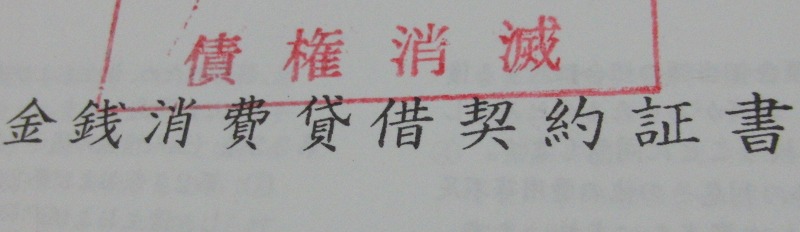 債権消滅
金銭消費貸借契約証書